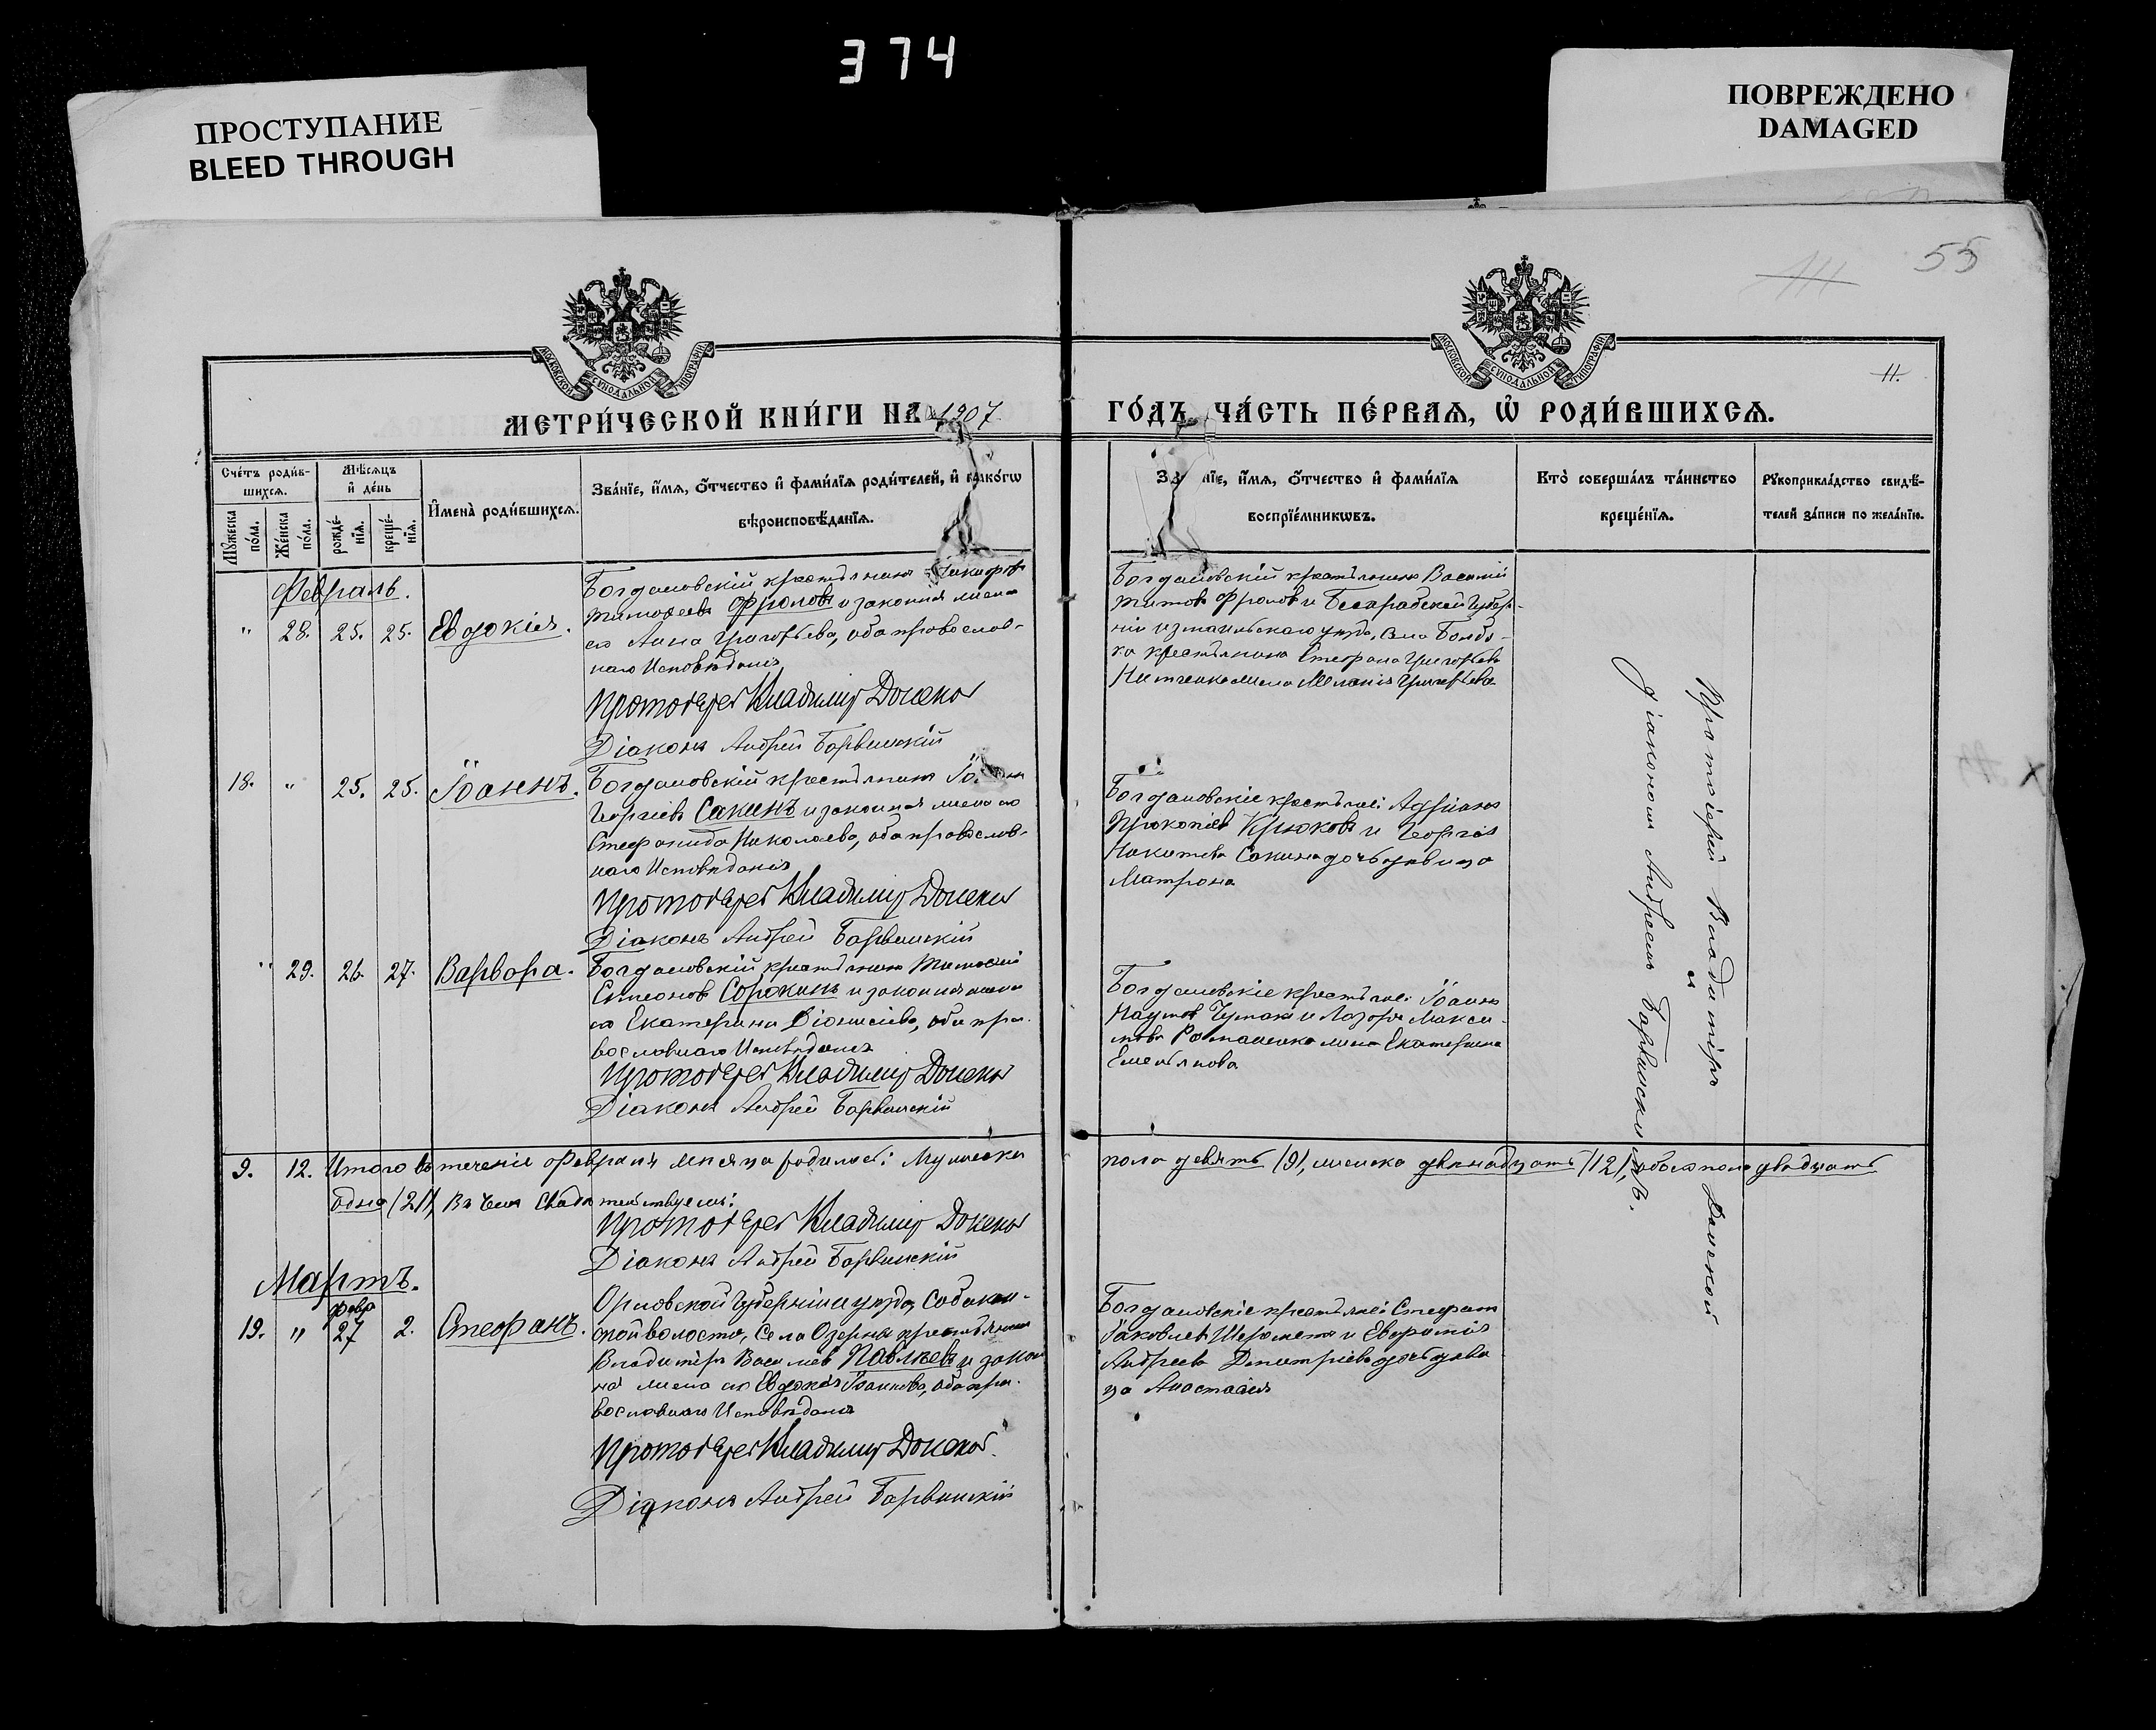 374
ПРОСТУПАНИЕ
BLEED THROUGH
ПОВРЕЖДЕНО
DAMAGED
55
11.
МОСКОВСКОЙ СѴНОДАЛЬНОЙ ТИПОГРАФІИ
МОСКОВСКОЙ СѴНОДАЛЬНОЙ ТИПОГРАФІИ
МЕТРИ́ЧЕСКОЙ КНИ́ГИ НА 1907
ГО́ДЪ ЧА́СТЬ ПЕ́РВАѦ, Ѡ҆ РОДИ́ВШИХСѦ.
Сче́тъ роди́в-
шихсѧ.
Мꙋ́жеска
по́ла.
Же́нска
по́ла.
Мѣ́сѧцъ
и҆ де́нь
рожде́-
нїѧ.
креще́-
нїѧ.
И҆мена̀ роди́вшихсѧ.
Зва́нїе, и҆́мѧ, ѻ҆́тчество и҆ фами́лїѧ роди́телей, и҆ како́гѡ
вѣроисповѣ́данїѧ.
нїе, и҆́мѧ, ѻ҆́тчество и҆ фами́лїѧ
воспрїе́мникѡвъ.
Кто̀ соверша́лъ та́инство
креще́нїѧ.
Рꙋкоприкла́дство свидѣ́-
телей за́писи по жела́нїю.
Февраль.
" 28. 25. 25. Евдокія.
Богдановскій крестьянинъ
Тимофеевъ Фроловъ и законная жена
его Анна Григорьева, оба православ-
наго Исповѣданія
Протоіерей Владимір Донской
Діаконъ Андрей Барвинскій
Богдановскій крестьянинъ Василій
Титовъ Фроловъ и Бессарабской Губер-
ніи Измаильскаго уѣзда, села
крестьянина Стефана Григорьева
жена Меланія Григорьева
18. " 25. 25. Іоаннъ.
Богдановскій крестьянинъ
Георгіевъ Сакинъ и законная жена его
Стефанида Николаева, оба православ-
наго Исповѣданія
Протоіерей Владимір Донской
Діаконъ Андрей Барвинскій
Богдановскіе крестьяне: Адріанъ
Прокопіевъ Крюковъ и Георгія
Никитева Сакина дочь дѣвица
Матрона
" 29. 26. 27. Варвара.
Богдановскій крестьянинъ Тимофей
Симеоновъ Сорокинъ и законная жена
его Екатерина Діонисіева, оба пра-
вославнаго Исповѣданія
Протоіерей Владимір Донской
Діаконъ Андрей Барвинскій
Богдановскіе крестьяне: Іоаннъ
Наумовъ Чумакъ и Лазаря Макси-
мова Романенко жена Екатерина
Емельянова
Протоіерей Владиміръ Донской
и
діакономъ Андреемъ Барвинскимъ.
9. 12. Итого въ теченіе Февраля мѣсяца родилось: Мужеска
пола девять /9/, женска двѣнадцать /12/, обоего пола двадцать
одно /21/, въ чемъ свидѣтельствуемъ:
Протоіерей Владимір Донской
Діаконъ Андрей Барвинскій
Мартъ.
Февр
19. " 27 2. Стефанъ.
Орловской Губерніи и уѣзда,
ской волости, Села Озерна крестьянинъ
Владиміръ Василіев и закон
ная жена его Евдокія Іоаннова, оба пра-
вославнаго Исповѣданія
Протоіерей Владимір Донской.
Діаконъ Андрей Барвинскій
Богдановскіе крестьяне: Стефанъ
Іаковлев Шереметъ и Евфимія
Андреева Димитріева дочь дѣви
ца Анастасія